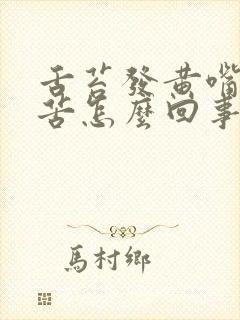 舌苔發黃嘴
苦怎麼回事
馬村鄉